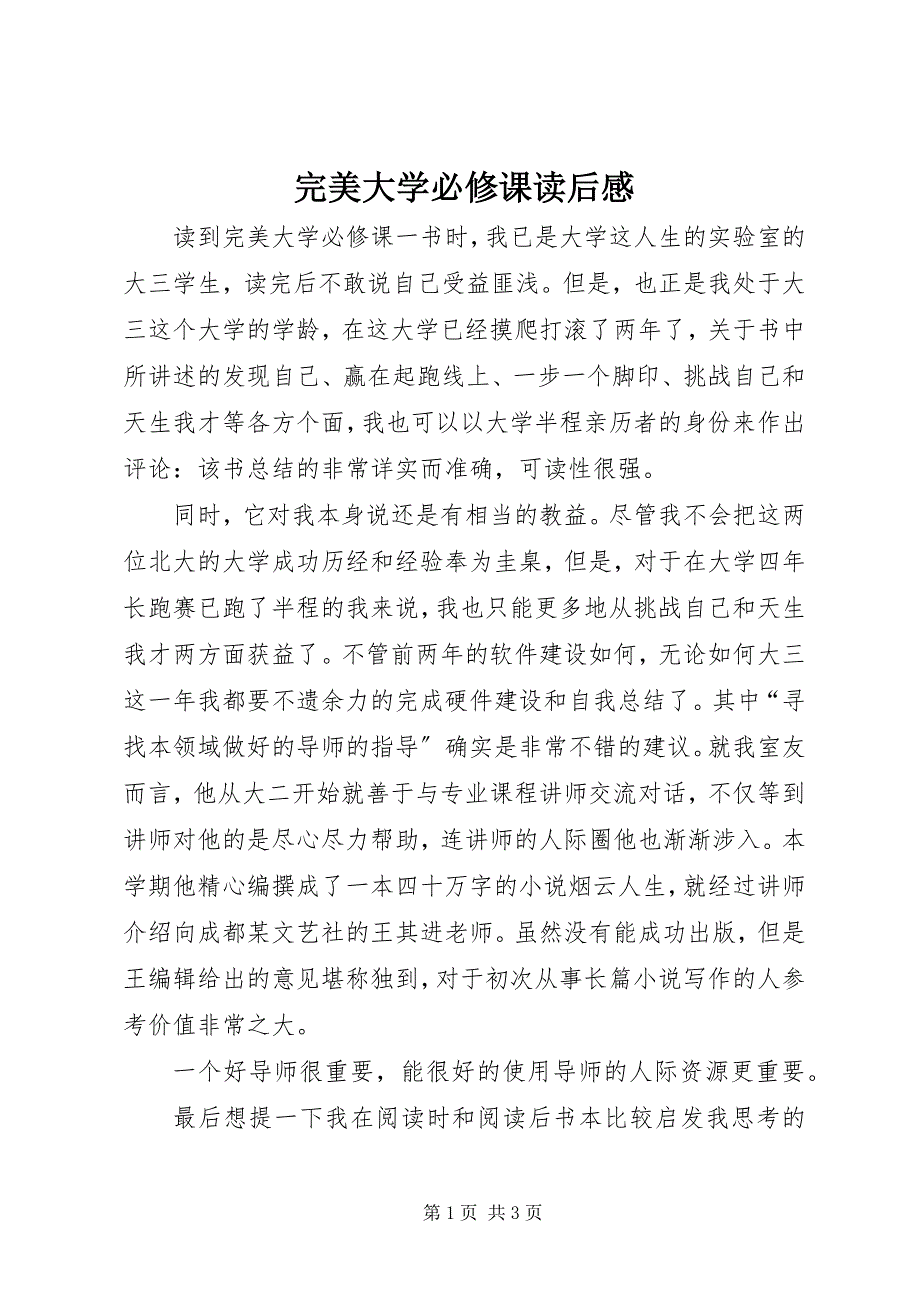 完美大学必修课读后感
读到完美大学必修课一书时，我已是大学这人生的实验室的
大三学生，读完后不敢说自己受益匪浅。但是，也正是我处于大
三这个大学的学龄，在这大学已经摸爬打滚了两年了，关于书中
所讲述的发现自己、赢在起跑线上、一步一个脚印、挑战自己和
天生我才等各方个面，我也可以以大学半程亲历者的身份来作出
评论：该书总结的非常详实而准确，可读性很强。
同时，它对我本身说还是有相当的教益。尽管我不会把这两
位北大的大学成功历经和经验奉为圭臬，但是，对于在大学四年
长跑赛已跑了半程的我来说，我也只能更多地从挑战自己和天生
我才两方面获益了。不管前两年的软件建设如何，无论如何大三
这一年我都要不遗余力的完成硬件建设和自我总结了。其中“寻
找本领域做好的导师的指导〞确实是非常不错的建议。就我室友
而言，他从大二开始就善于与专业课程讲师交流对话，不仅等到
讲师对他的是尽心尽力帮助，连讲师的人际圈他也渐渐涉入。本
学期他精心编撰成了一本四十万字的小说烟云人生，就经过讲师
介绍向成都某文艺社的王其进老师。虽然没有能成功出版，但是
王编辑给出的意见堪称独到，对于初次从事长篇小说写作的人参
考价值非常之大。
一个好导师很重要，能很好的使用导师的人际资源更重要。
最后想提一下我在阅读时和阅读后书本比较启发我思考的
第 1 页 共 3 页